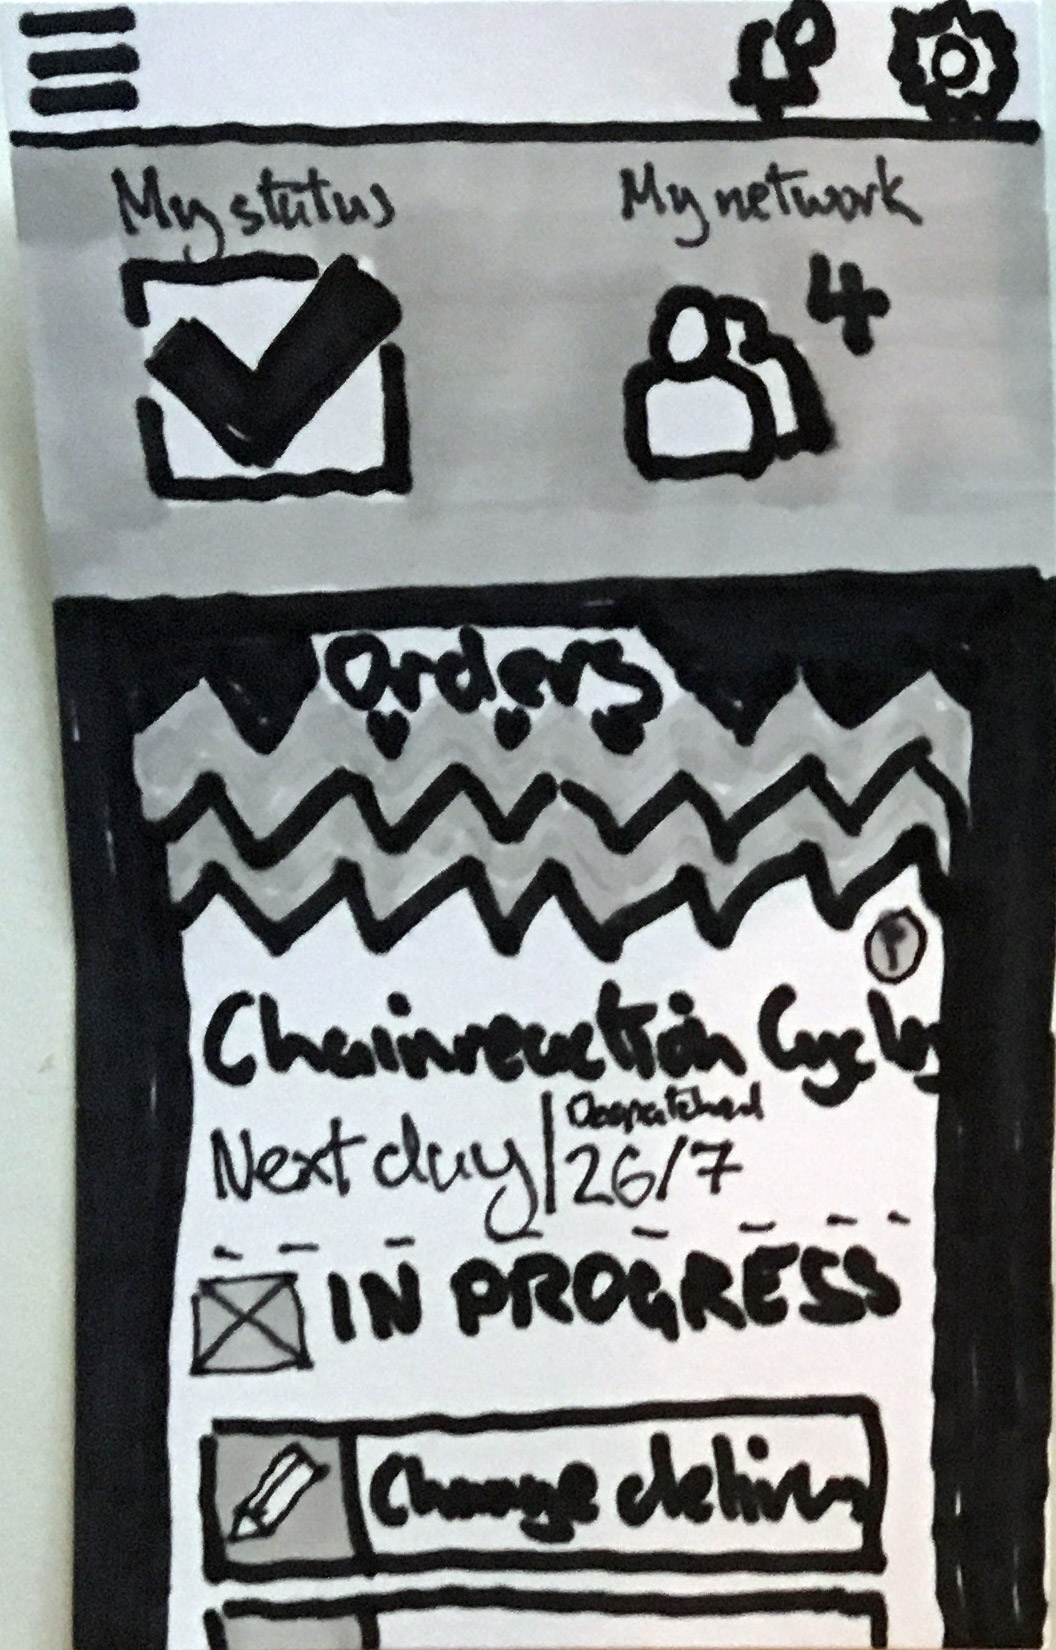 My status
My network
4
Orders
Chainreaction Cycles
Next day
Despatched
26/7
IN PROGRESS
Change delivery